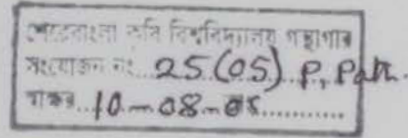 শেরেবাংলা কৃষি বিশ্ববিদ্যালয় গ্রন্থাগার
সংযোজন নং... 25 (05) P, Path.
স্বাক্ষর... 10-08-05............